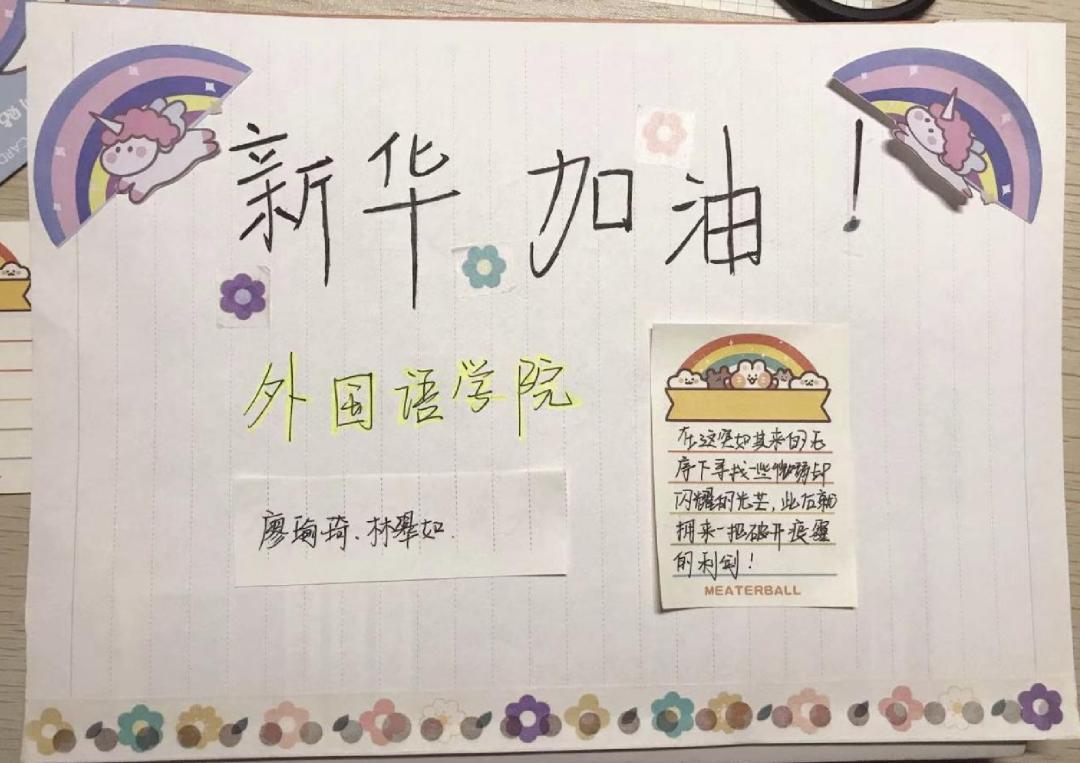 新华加油！
外国语学院
廖瑜琦、林翠如.
在这突如其来的无
序下寻找一些微弱却
闪耀的光芒，此后就
拥来一把破开疫霾
的利剑！
MEATERBALL